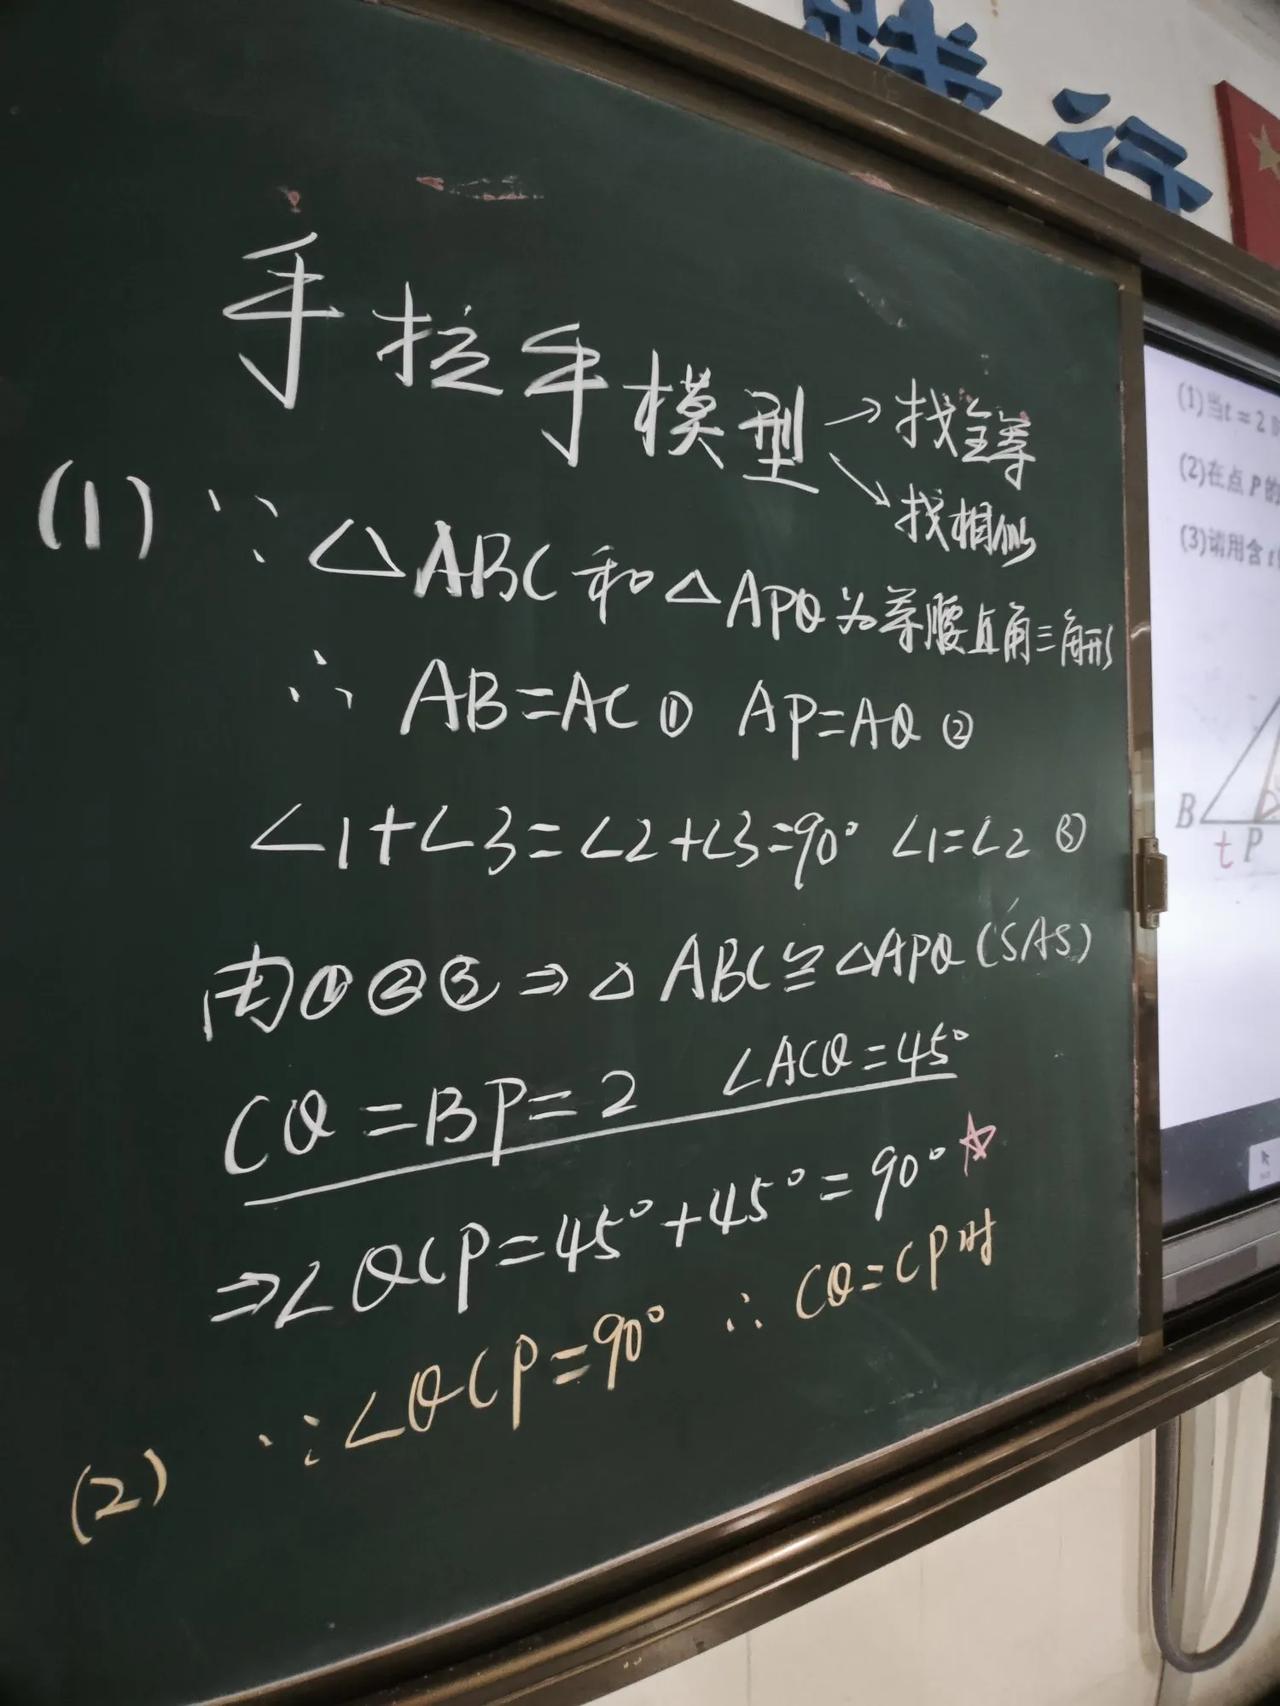 践行
手拉手模型 → 找全等
↘ 找相似
(1) ∵ △ABC和△APQ为等腰直角三角形
∴ AB=AC① AP=AQ②
∠1+∠3=∠2+∠3=90° ∠1=∠2 ③
由①②③⇒△ABC≌△APQ(SAS)
CQ=BP=2 ∠ACQ=45°
⇒∠QCP=45°+45°=90°☆
(2) ∵∠QCP=90° ∴ CQ=CP时
(1)当t=2
(2)在点P的
(3)请用含t
B
t P